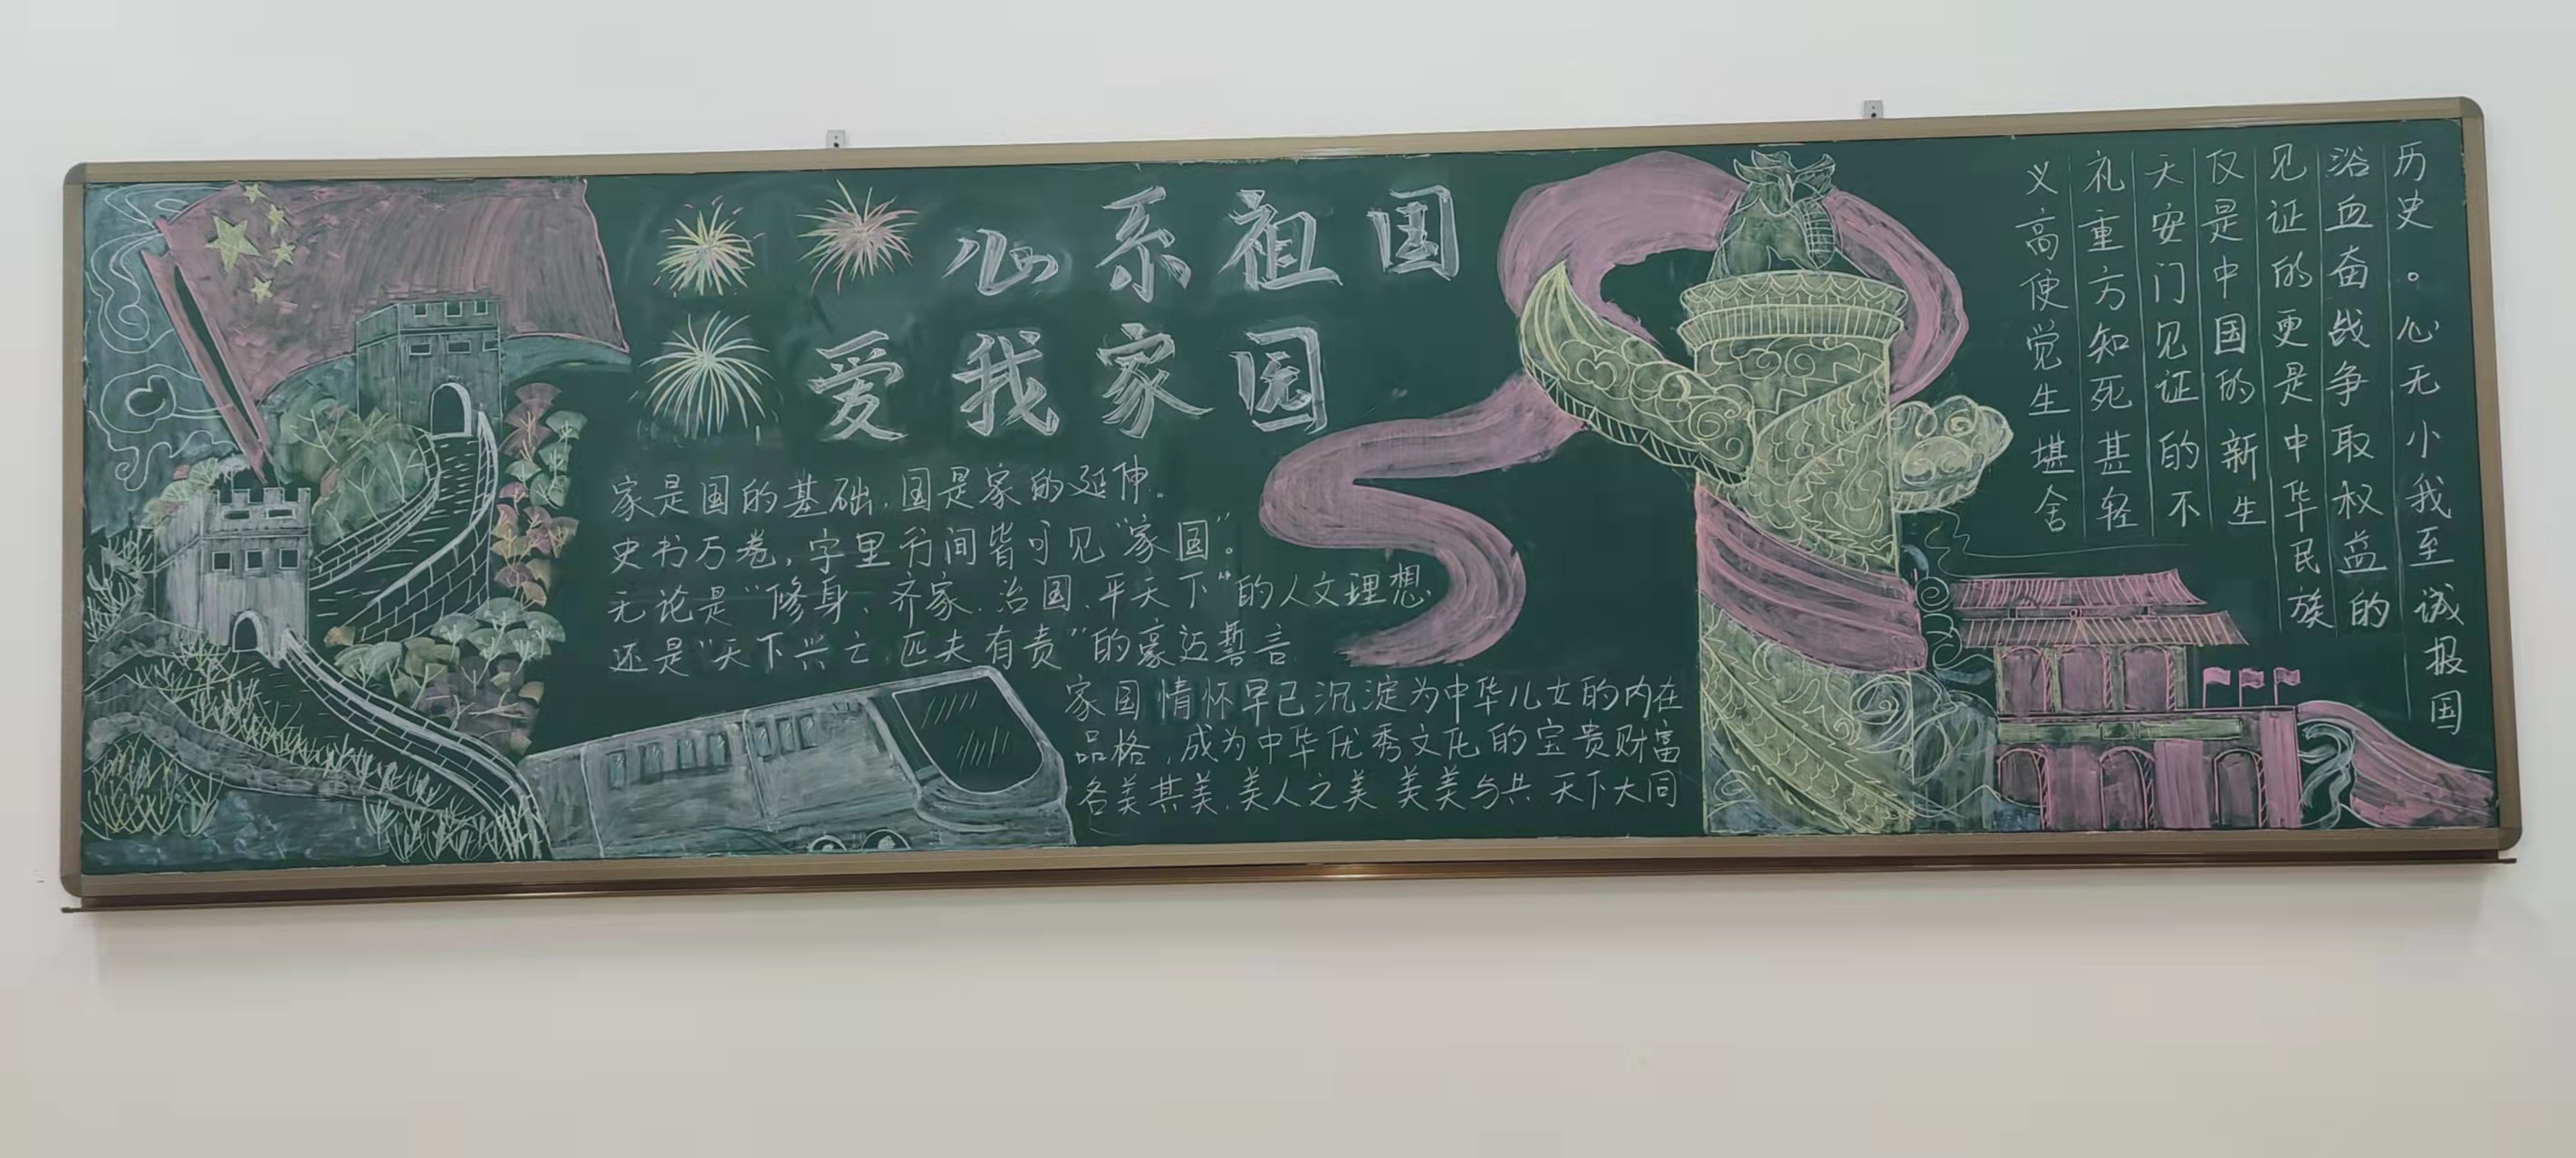 心系祖国
爱我家园
家是国的基础,国是家的延伸。
史书万卷,字里行间皆可见"家国"。
无论是"修身、齐家、治国、平天下"的人文理想
还是"天下兴亡,匹夫有责"的豪迈誓言
家国情怀早已沉淀为中华儿女的内在
品格,成为中华优秀文化的宝贵财富
各美其美,美人之美 美美与共 天下大同
义高便觉生堪舍
礼重方知死甚轻
天安门见证的不
仅是中国的新生
见证的更是中华民族
浴血奋战争取权益的
历史。心无小我至诚报国